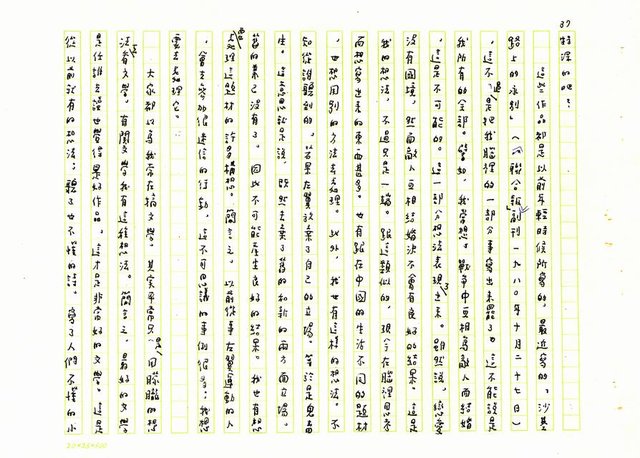 37
特深的吧?
這些作品都是以前年輕時候所寫的,最近寫的「沙基
路上的永別」(「聯合報」副刊一九八〇年十月二十七日)
,這不過是把我腦裡的一部分事寫出來罷了。這不能說是
我所有的全部。譬如,我常想。戰爭中互相為敵人而結婚
,這是不可能的。這一部分想法表現出來。雖然說,戀愛
沒有國境,然而敵人互相結婚決不會有良好的結果。這是
我的想法。不過只是一端。跟這類似的,現今在腦裡思考
而想寫出來的東西甚多。也有跟在中國的生活不同的題材
,也想用別的方法去處理。此外,我也有這樣的想法。不
知從誰聽到的,若果在算放棄了自己的立場,等於是鬼
生。這意思就是說,既然丟棄了舊的和新的兩方面立場,
舊的業已沒有了。因此不可能產生良好的結果。我也有想
要處理這題材的許多構想。簡言之。以前從事左翼運動的人
,會去參加很迷信的行動,這不可思議的事例很多;我想
要去處理它。
大家都以為我常在搞文學。其實平常只是用朦朧的想
法看文學。有關文學我有這種想法。簡言之,最好的文學
是任誰去讀也覺得是好作品。這才是非常好的文學。這是
從以前就有的想法;聽了也不懂的詩。寫了人們不懂的小
20×25=500